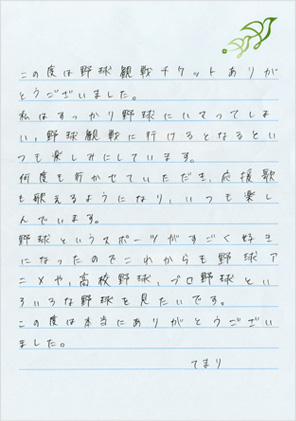 この度は野球観戦チケットありが
とうございました。
私はすっかり野球にいてってしま
い、野球観戦に行けるとなるとい
つも楽しみにしています。
何度も行かせていただき、応援歌
も歌えるようになり、いつも楽し
んでいます。
野球というスポーツがすごく好き
になったのでこれからも野球ア
ニメや、高校野球、プロ野球とい
ろいろな野球を見たいです。
この度は本当にありがとうござい
ました。
てまり